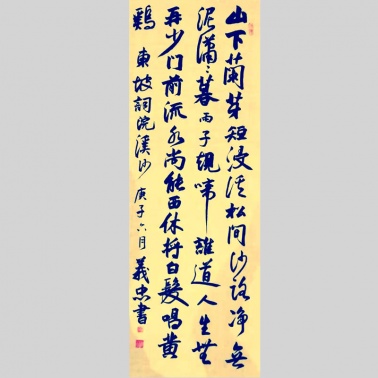 山下蘭芽短浸溪松间沙路净無
泥瀟〻暮雨子規啼誰道人生無
再少门前流水尚能西休将白髮唱黄
鷄 東坡詞浣溪沙 庚子六月 義忠書